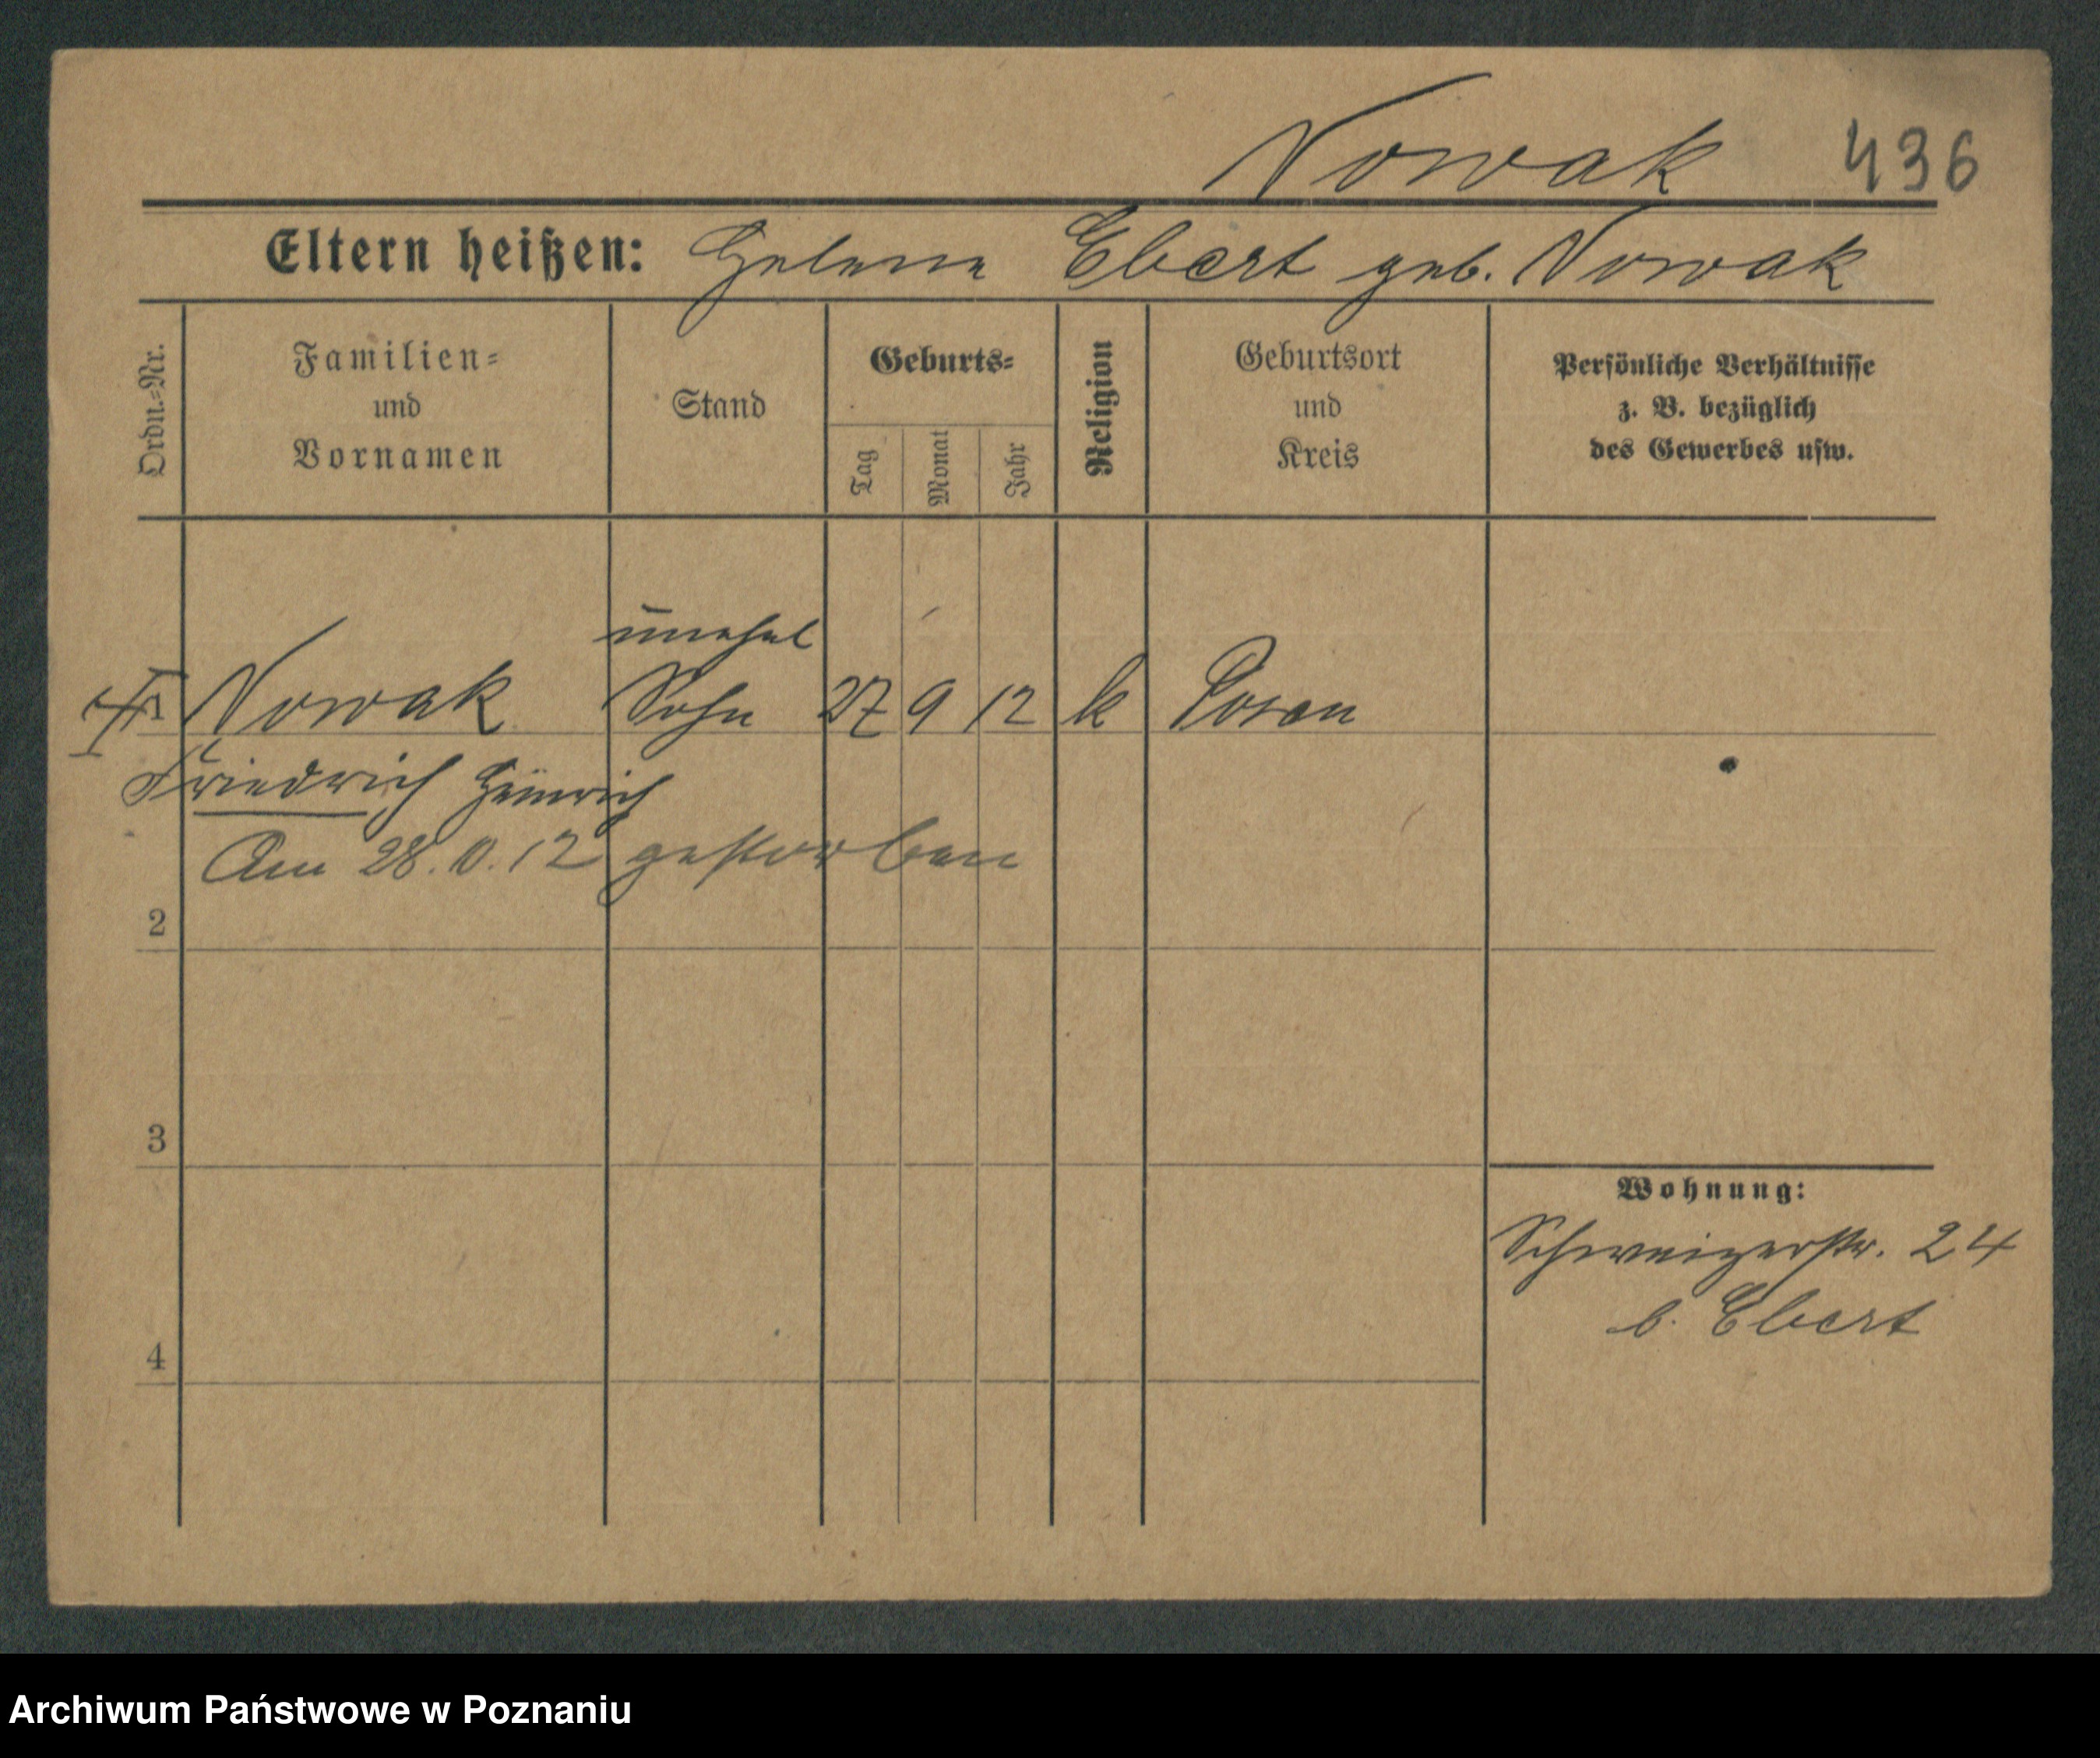 Nowak 436
Eltern heißen: Helene Ebert geb. Nowak
Ordn.-Nr.
Familien-
und
Vornamen
Stand
Geburts-
Tag
Monat
Jahr
Religion
Geburtsort
und
Kreis
Persönliche Verhältnisse
z. B. bezüglich
des Gewerbes usw.
unehel
1 Nowak Sohn 27 9 12 k Posen
Friedrich Heinrich
Am 28.10.12 gestorben
2
3
Wohnung:
Schweizerstr. 24
b. Ebert
4
Archiwum Państwowe w Poznaniu